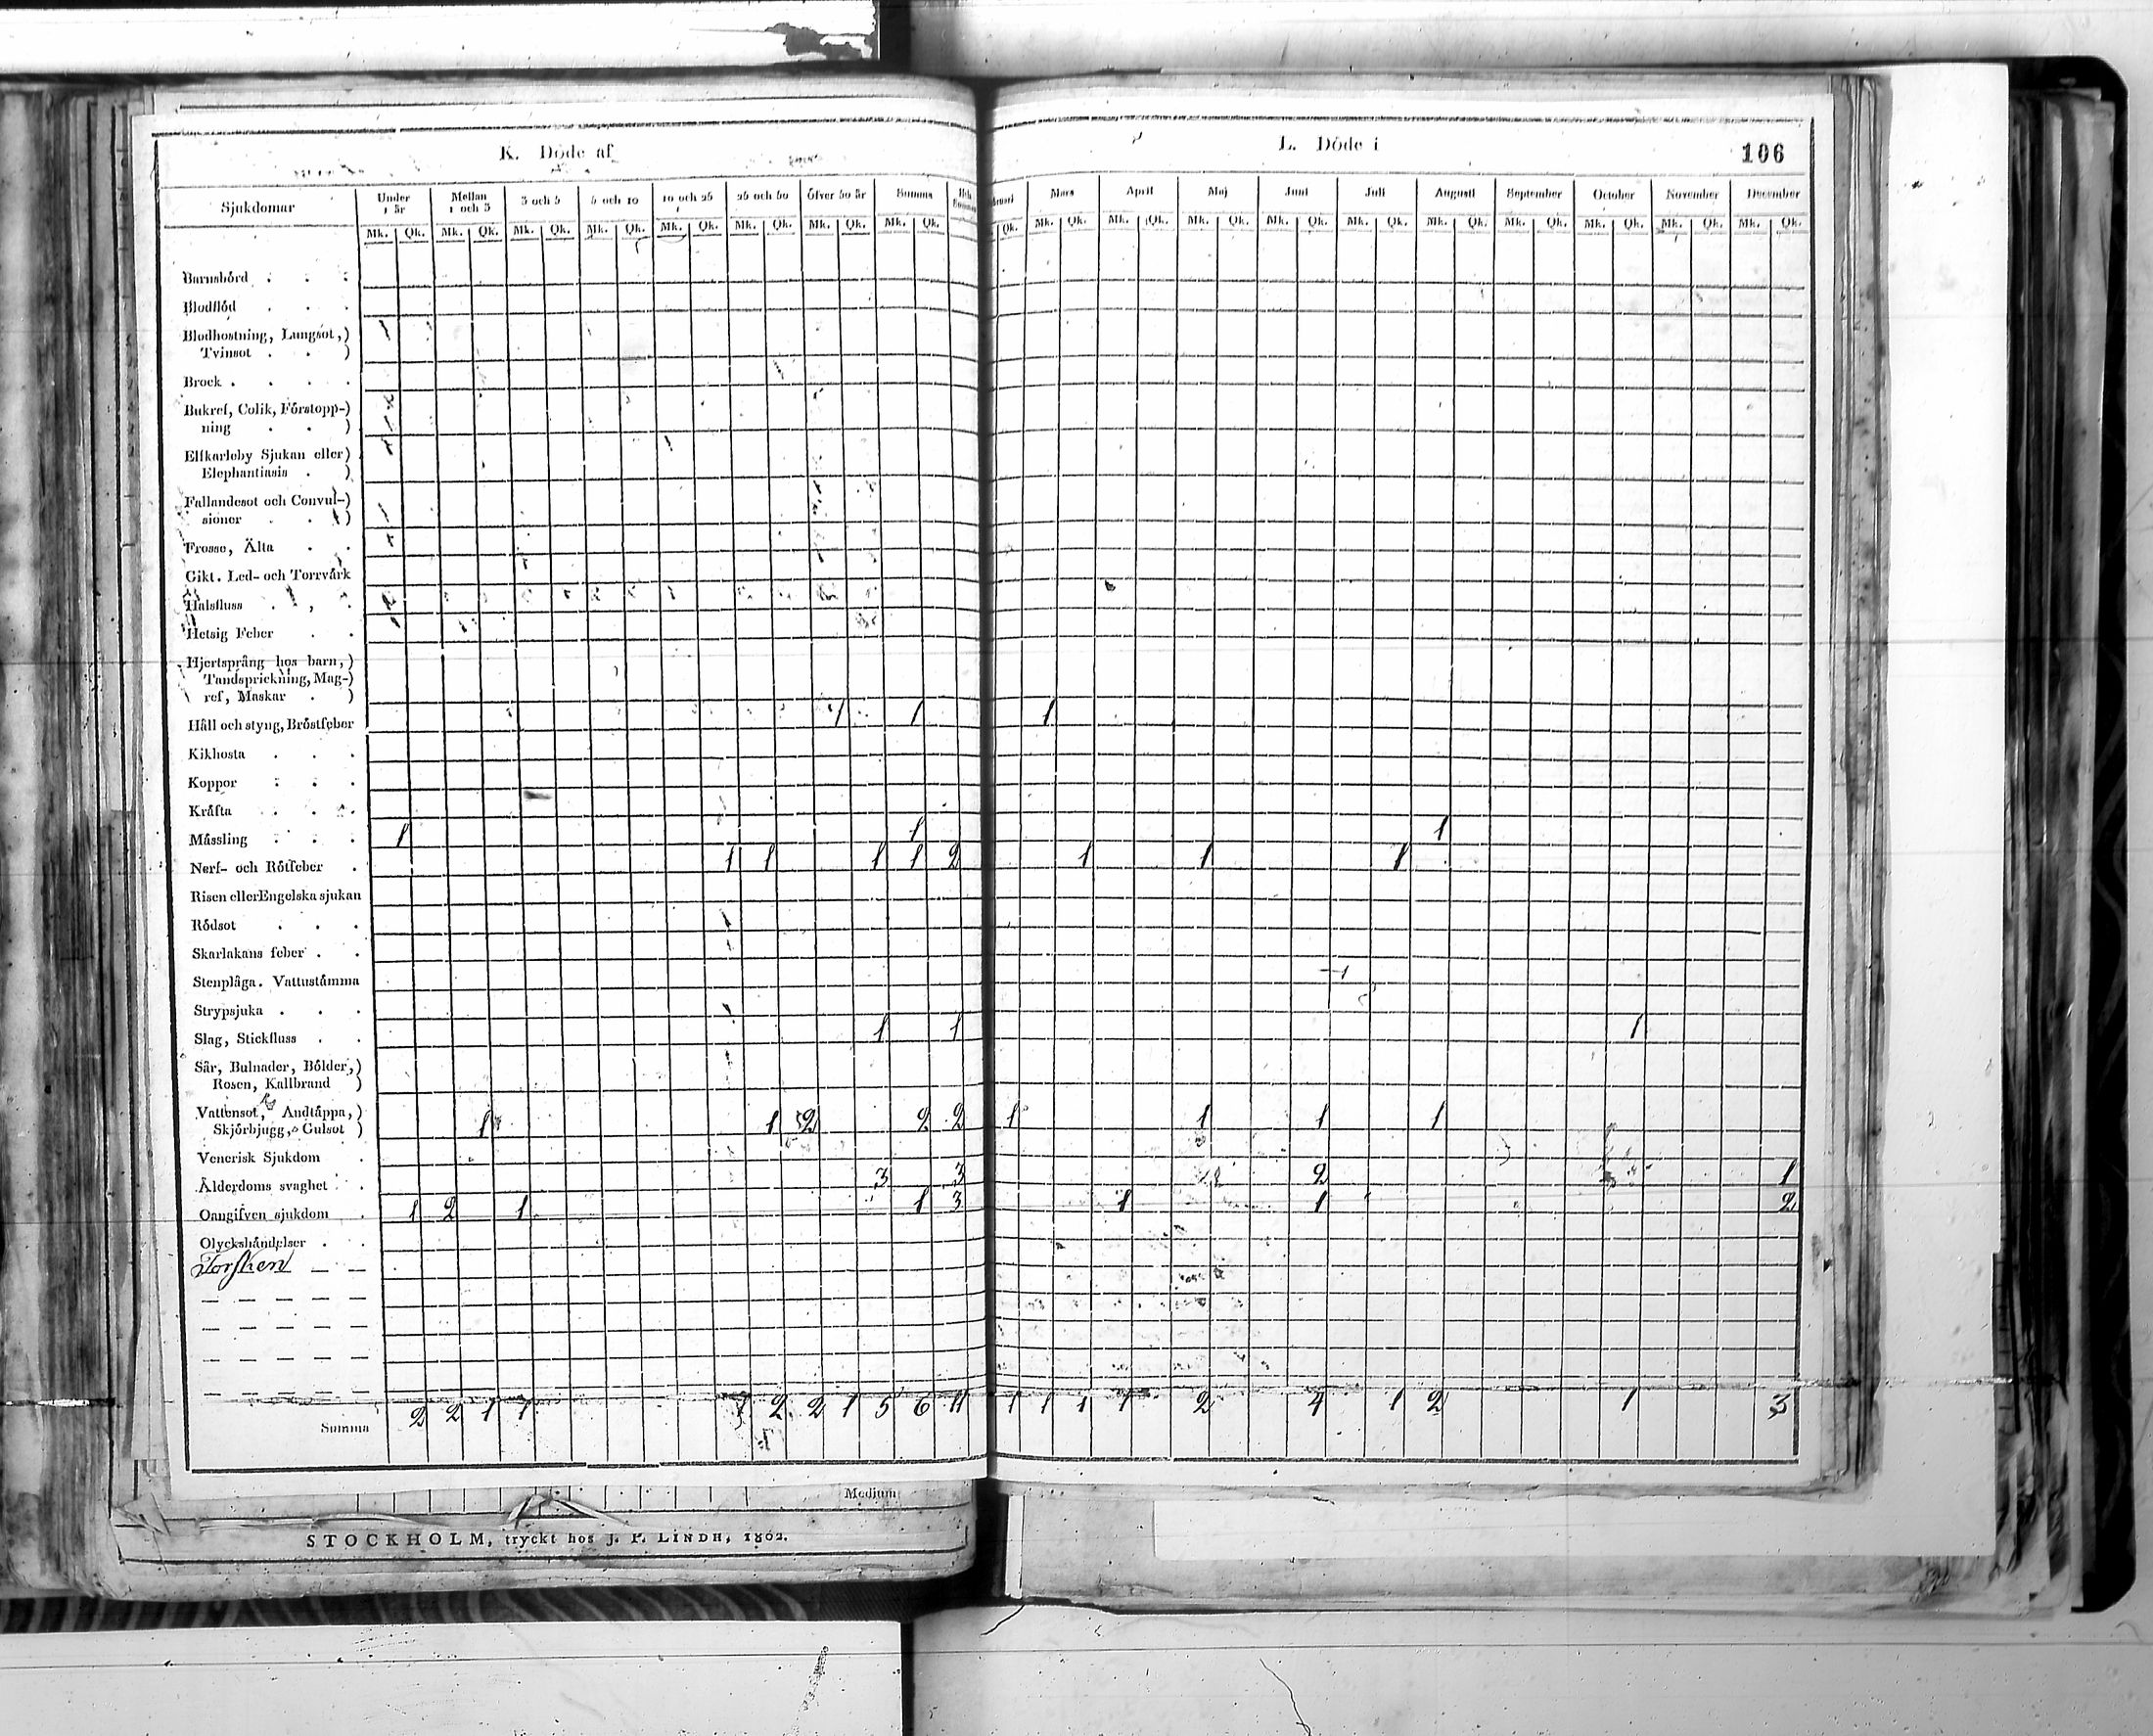 K. Döde af
L. Döde i
106
Sjukdomar
Under 1 år
Mellan 1 och 3
3 och 5
5 och 10
10 och 25
25 och 50
Öfver 50 år
Summa
Mars
April
Maj
Juni
Juli
Augusti
September
October
November
December
Mk. Qk. Mk. Qk. Mk. Qk. Mk. Qk. Mk. Qk. Mk. Qk. Mk. Qk. Mk. Qk.
Qk. Mk. Qk. Mk. Qk. Mk. Qk. Mk. Qk. Mk. Qk. Mk. Qk. Mk. Qk. Mk. Qk. Mk. Qk. Mk. Qk.
Barnsbörd
Blodflöd
Blodhostning, Lungsot,)
Tvinsot )
Brock
Bukref, Colik, Förstopp-)
ning )
Elfkarleby Sjukan eller)
Elephantiasis )
Fallandesot och Convul-)
sioner )
Frosso, Älta
Gikt. Led- och Torrvärk
Halsfluss
Hetsig Feber
Hjertsprång hos barn,)
Tandsprickning, Mag-)
ref, Maskar )
Håll och styng, Bröstfeber 1 1 1
Kikhosta
Koppor
Kräfta
Mässling 1 1 1
Nerf- och Rötfeber 1 1 1 1 2 1 1 1
Risen eller Engelska sjukan
Rödsot
Skarlakans feber
Stenplåga. Vattustämma
Strypsjuka
Slag, Stickfluss 1 1 1
Sår, Bulnader, Bölder,)
Rosen, Kallbrand )
Vattensot, Andtäppa,)
Skjörbjugg, Gulsot ) 1 1 2 2 2 1 1 1 1
Venerisk Sjukdom
Ålderdoms svaghet 3 3 2 1
Oangifven sjukdom 1 2 1 1 3 1 1 2
Olyckshändelser
Torsken
Summa 2 2 1 1 1 2 2 1 5 6 11 1 1 1 1 2 4 1 2 1 3
Medium
STOCKHOLM, tryckt hos J. P. LINDH, 1802.